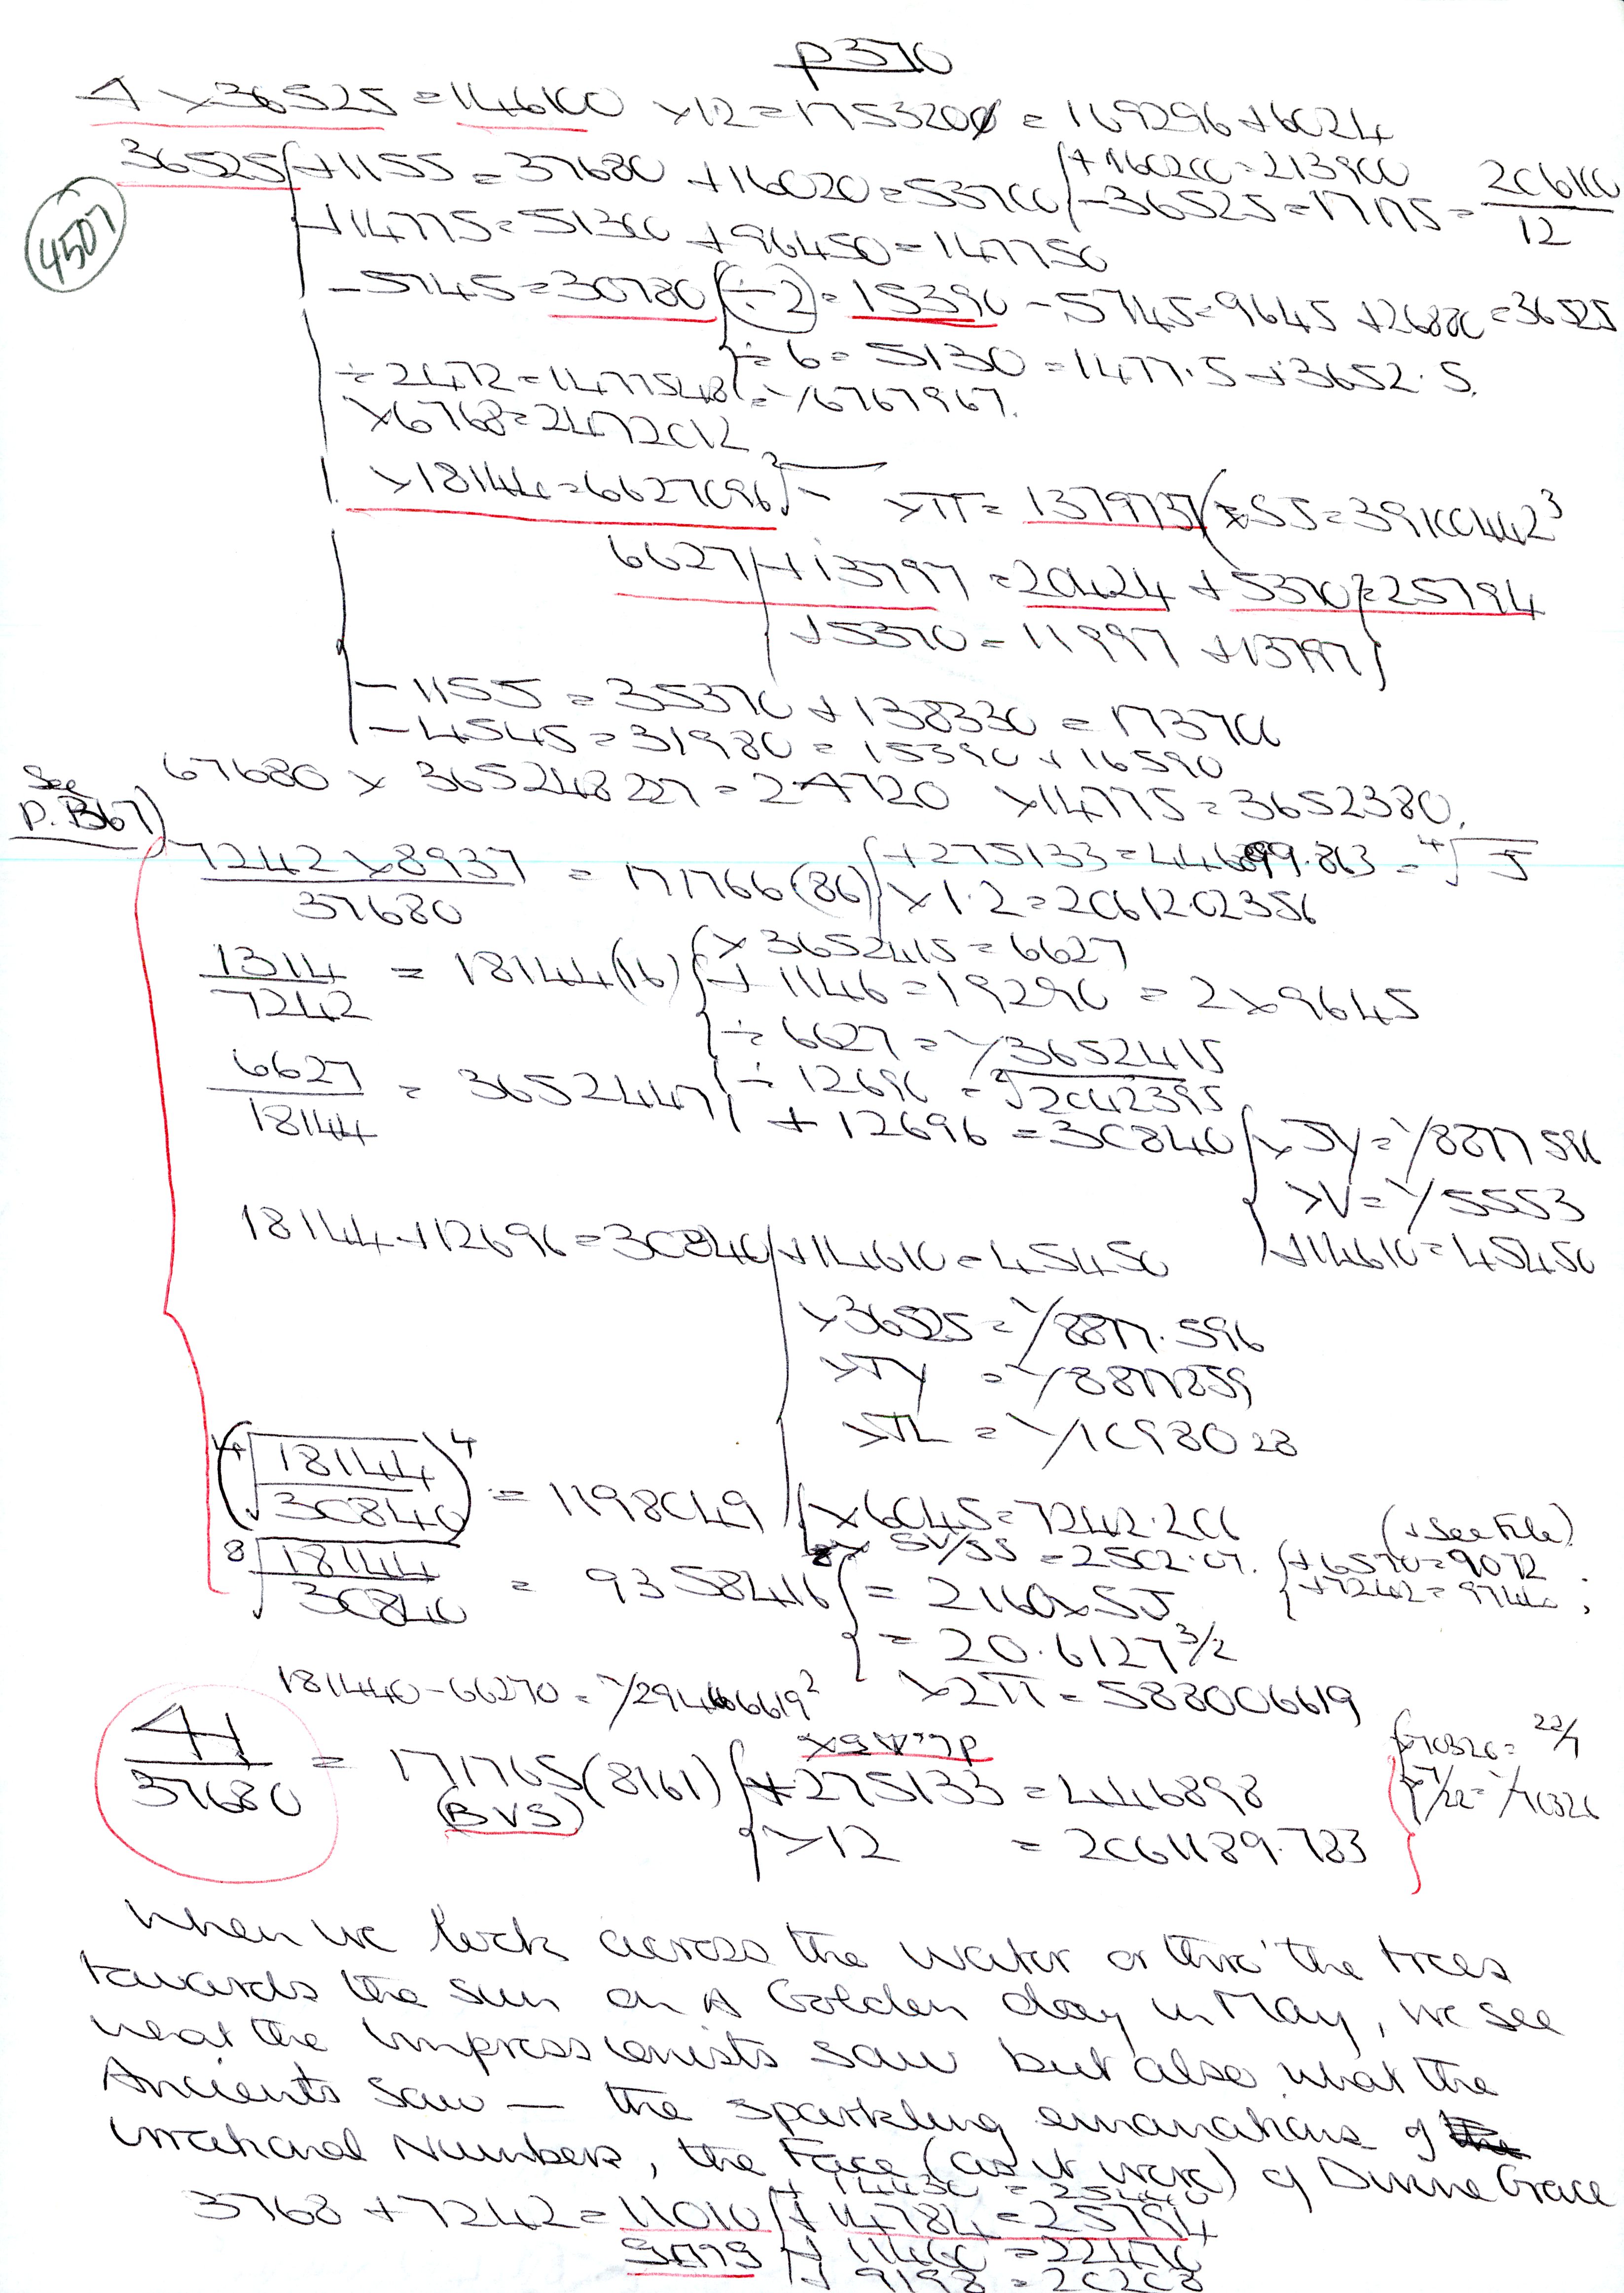 p370
4 × 36525 = 146100 × 12 = 1753200 = 169296 + 6024
36525 + 1155 = 37680 + 16020 = 53700 + 160200 = 213900
- 36525 = 17175 = 206100 / 12
4507
+ 14775 = 51300 + 96450 = 147750
- 5745 = 30780 (÷ 2) = 15390 - 5745 = 9645 + 26880 = 36525
÷ 6 = 5130 = 1477.5 + 3652.5
÷ 2472 = 1477548 = 1/6767967.
× 6768 = 2472012
× 18144 = 6627096
× π = 1379737 × SJ = 39100442³
6627 + 13797 = 20424 + 5370 = 25794
+ 5370 = 11997 + 13797
- 1155 = 35370 + 138330 = 173700
- 4545 = 31980 = 15390 + 16590
67680 × 365248227 = 24720 × 14775 = 3652380.
See
p. B67)
7242 × 8937 / 37680 = 171766(86) + 275133 = 446899.863 = ⁴√J
× 1.2 = 2061202356
1314 / 7242 = 18144(16) × 3652415 = 6627
+ 1146 = 19290 = 2 × 9645
÷ 6627 = 1/3652415
6627 / 18144 = 3652447 ÷ 12696 = √2042395
+ 12696 = 30840 × JY = 1/8877596
× V = 1/5553
+ 14610 = 45450
18144 + 12696 = 30840 + 14610 = 45450
× 36525 = 1/8877.596
× TY = 1/8877859
× JL = 1/1098028
(⁴√18144 / 30840)⁴ = 1198049 × 6045 = 7242.206
SV/SS = 2502.07. + 6570 = 9072
(+ See File)
+ 7242 = 9744;
⁸√18144 / 30840 = 9358416 = 2160 × SJ
= 20.6127^3/2
181440 - 66270 = 1/294006619² × 2π = 588006619
4H / 37680 = 171765(8161) + 275133 = 446898
(BVS)
× 70326 = 22/7
× 7/22 = 1/70326
× 12 = 2061189.783
When we look across the water or thro' the trees
towards the sun on a Golden day in May, we see
what the Impressionists saw but also what the
Ancients saw — the sparkling emanations of
Irrational Numbers, the Face (as it were) of Divine Grace
+ 14430 = 25440
3768 + 7242 = 11010 + 14784 = 25794
+ 11460 = 22470
+ 9198 = 20208